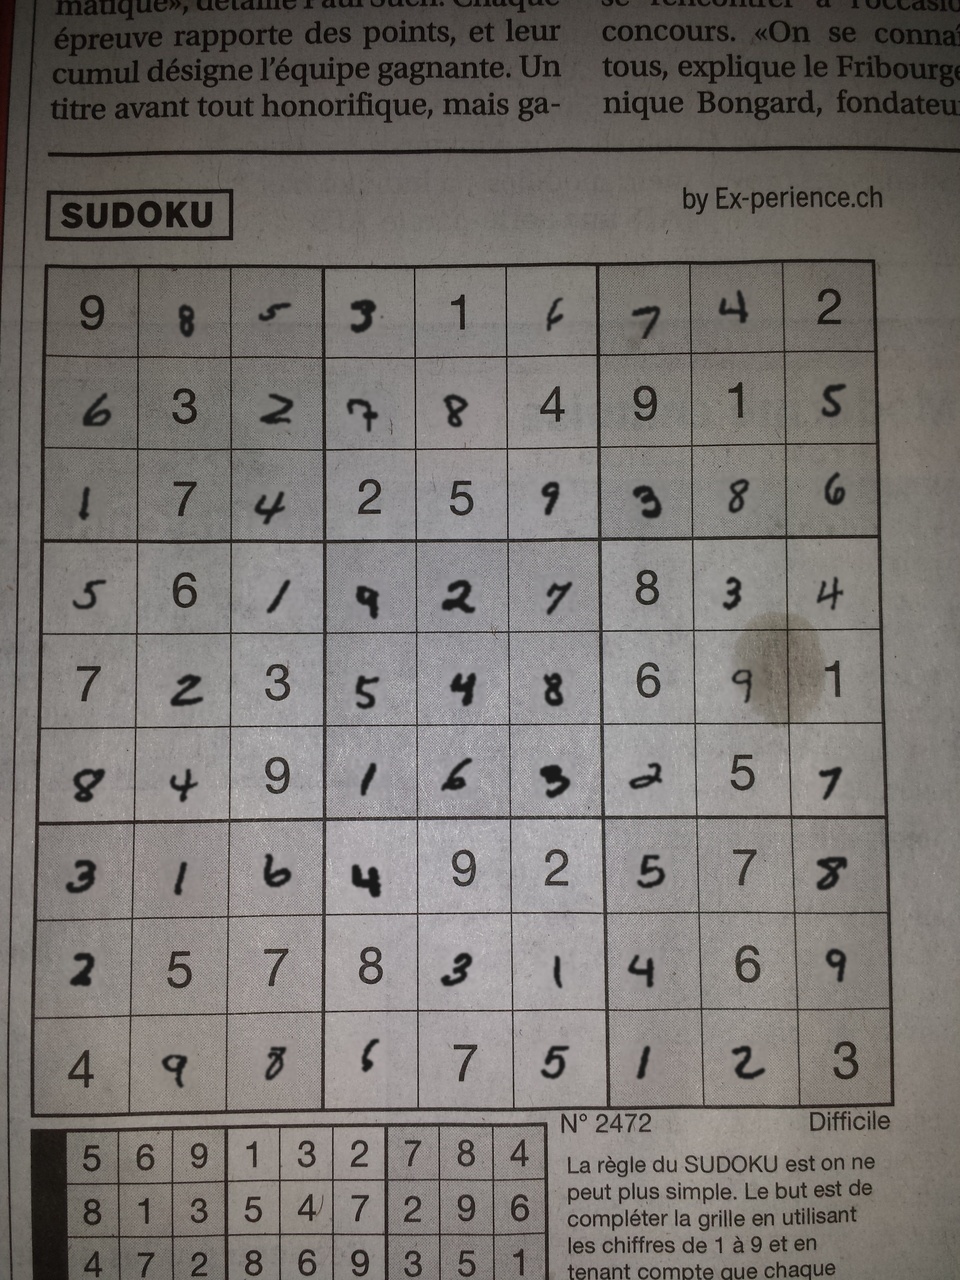 matique», détaille Paul Such. Chaque
épreuve rapporte des points, et leur
cumul désigne l'équipe gagnante. Un
titre avant tout honorifique, mais ga-
se rencontrer à l'occasio
concours. «On se connaî
tous, explique le Fribourge
nique Bongard, fondateu
SUDOKU
by Ex-perience.ch
9 8 5 3 1 6 7 4 2
6 3 2 7 8 4 9 1 5
1 7 4 2 5 9 3 8 6
5 6 1 9 2 7 8 3 4
7 2 3 5 4 8 6 9 1
8 4 9 1 6 3 2 5 7
3 1 6 4 9 2 5 7 8
2 5 7 8 3 1 4 6 9
4 9 8 6 7 5 1 2 3
N° 2472 Difficile
5 6 9 1 3 2 7 8 4
8 1 3 5 4 7 2 9 6
4 7 2 8 6 9 3 5 1
La règle du SUDOKU est on ne
peut plus simple. Le but est de
compléter la grille en utilisant
les chiffres de 1 à 9 et en
tenant compte que chaque